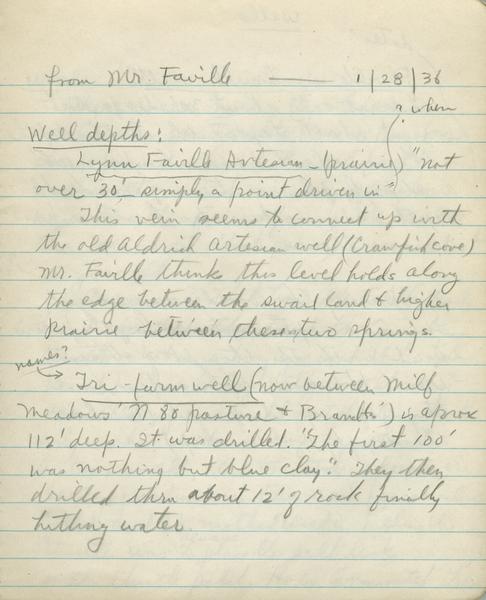 from Mr. Faville — 1/28/36
? when
Well depths:
Lynn Faville Artesian - (prairie) "not
over 30', simply a point driven in"
This vein seems to connect up with
the old Aldrich artesian well (Crawfish cove)
Mr. Faville thinks this level holds along
the edge between the swail land & higher
prairie between these two springs.
names?
Tri-farm well (now between Milf
Meadows' N 80 pasture & Brandts') is aprox
112' deep. It was drilled. "The first 100'
was nothing but blue clay." They then
drilled thru about 12' of rock finally
hitting water.